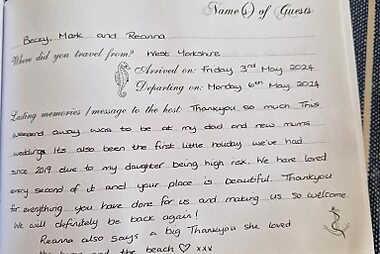 Name(s) of Guests
Becky, Mark and Reanna
Where did you travel from? West Yorkshire
Arrived on: Friday 3rd May 2024
Departing on: Monday 6th May 2024
Lasting memories / message to the host: Thankyou so much This
weekend away was to be at my dad and new mums
weddings Its also been the first little holiday we've had
since 2019 due to my daughter being high risk. We have loved
every second of it and your place is beautiful. Thankyou
for everything you have done for us and making us so welcome
We will definitely be back again!
Reanna also says a big Thankyou she loved
the and the beach ♡ xxx